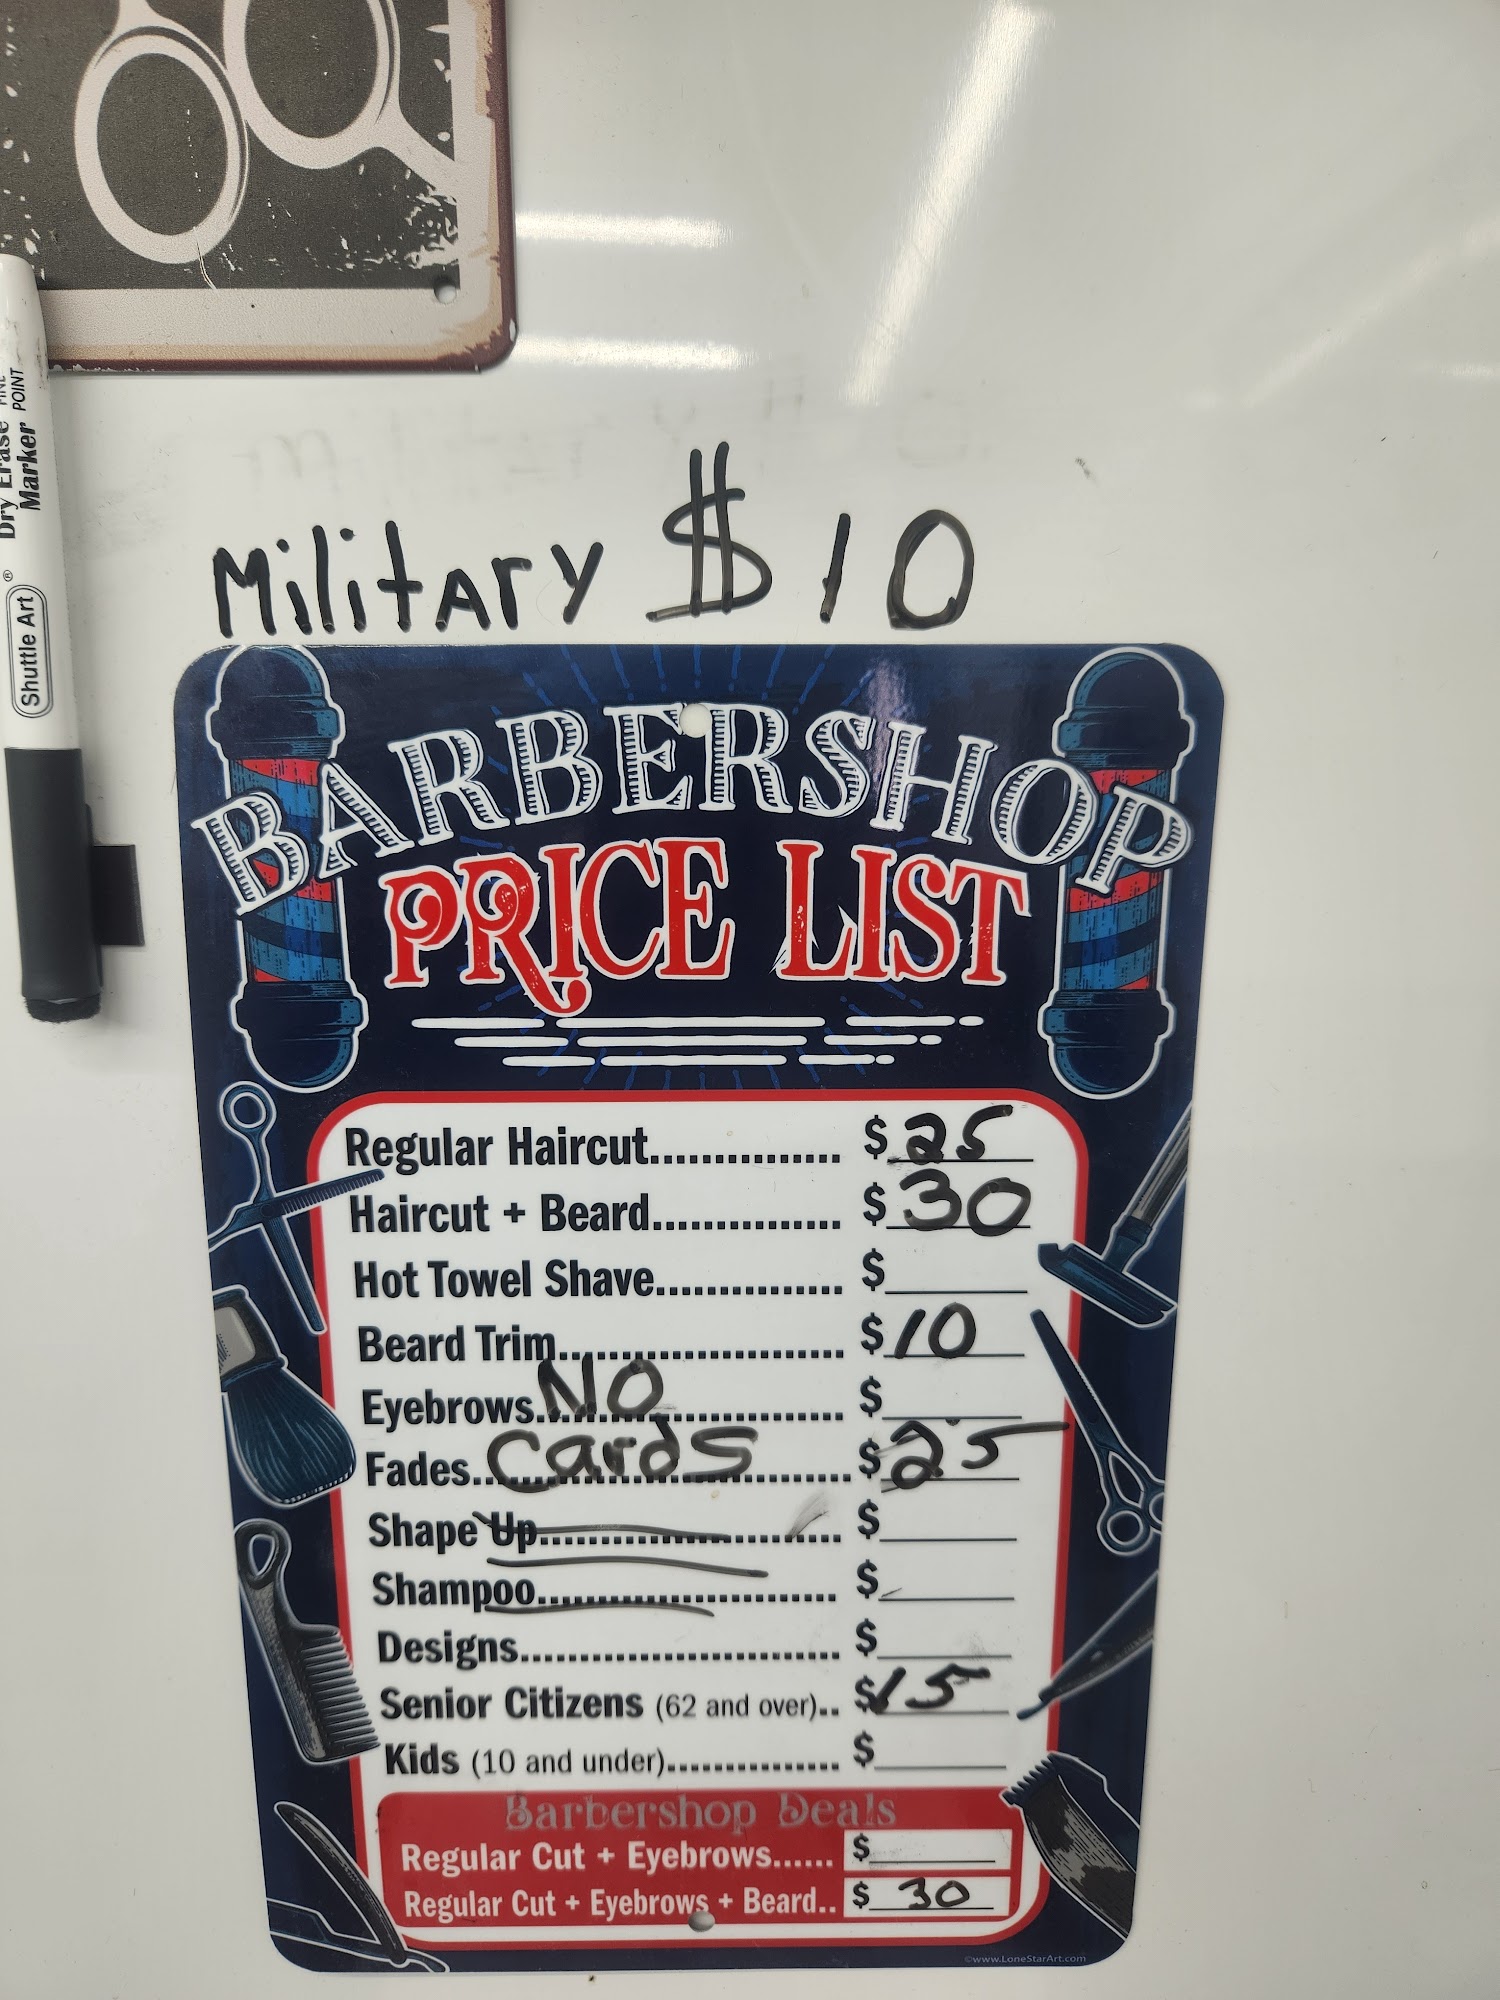 Dry Erase FINE
Marker POINT
Shuttle Art ®
Military $10
BARBERSHOP
PRICE LIST
Regular Haircut............... $ 25
Haircut + Beard............... $ 30
Hot Towel Shave............... $
Beard Trim...................... $ 10
NO
Eyebrows........................ $
cards
Fades............................. $ 25
Shape Up........................ $
Shampoo........................ $
Designs......................... $
Senior Citizens (62 and over).. $ 15
Kids (10 and under).............. $
Barbershop Deals
Regular Cut + Eyebrows...... $
Regular Cut + Eyebrows + Beard.. $ 30
©www.LoneStarArt.com